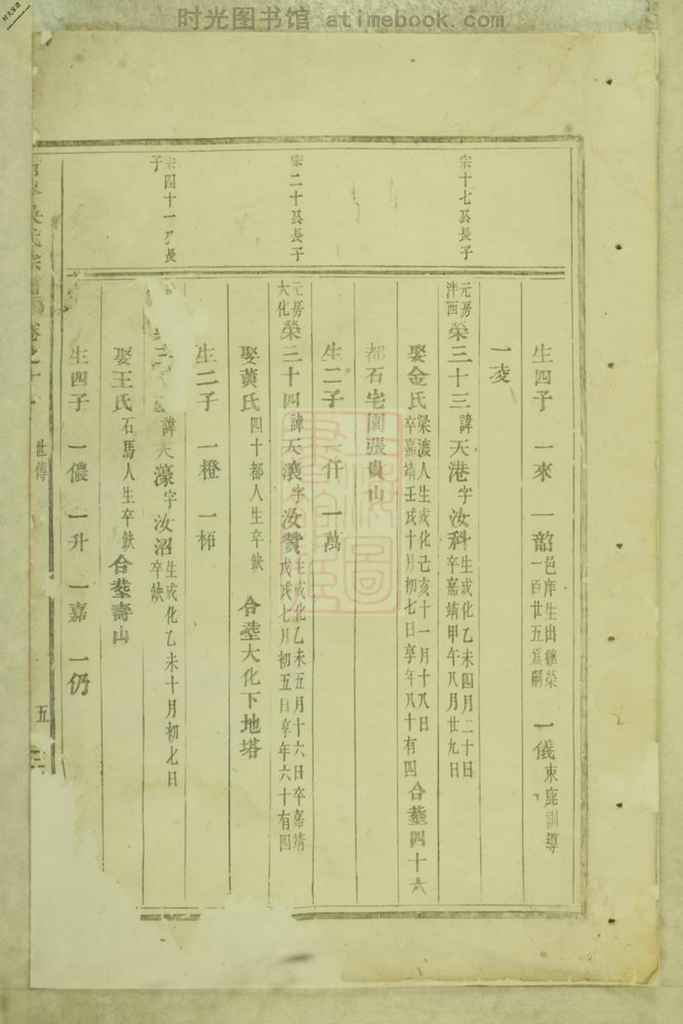 时光图书馆 atimebook.com
宗十七長長子
宗二十長長子
宗四十一 長
子
生四子 一來 一韶 邑庠生出繼榮
一百廿五爲嗣 一儀 東鹿訓導
一凌
元房
洋西 榮三十三 諱天港字汝科 生成化乙未四月二十日
卒嘉靖甲午八月廿九日
娶金氏 梁渡人生成化己亥十一月十八日
卒嘉靖壬戌十月初七日享年八十有四 合塟四十六
都石宅園張貴山
生二子 一仟 一萬
元房
大化 榮三十四 諱天瀼字汝贊 生成化乙未五月十六日卒嘉靖
戊戌七月初五日享年六十有四
娶黃氏 四十都人生卒缺 合塟大化下地塔
生二子 一橙 一柿
諱天濠字汝沼 生成化乙未十月初七日
卒缺
娶王氏 石馬人生卒缺 合塟壽山
生四子 一儂 一升 一嘉 一仍
吳氏宗譜 卷之十 世傳 五